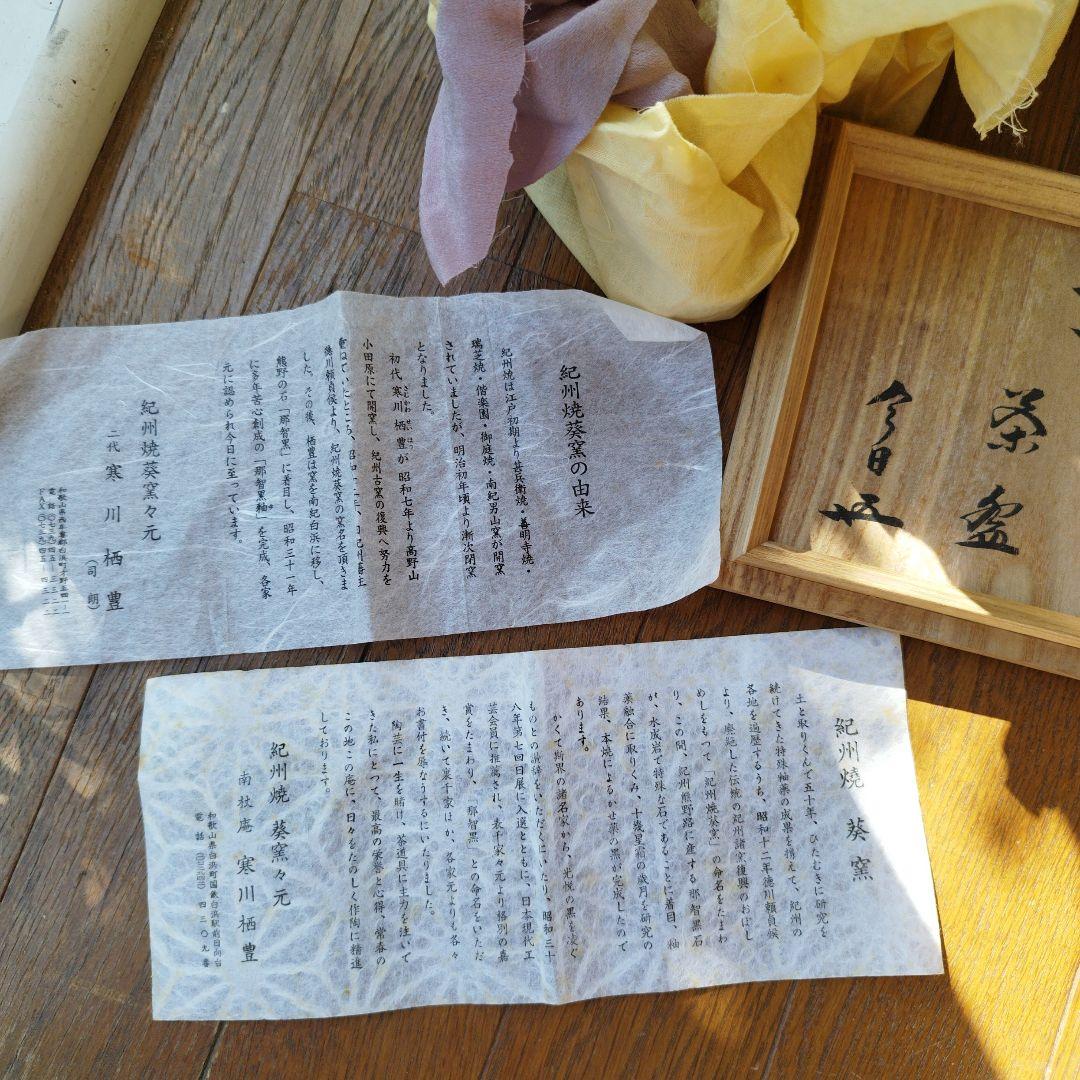 紀州焼葵窯の由来
紀州焼は江戸初期より甚兵衛焼・善明寺焼・
瑞芝焼・偕楽園・御庭焼・南紀男山窯が開窯
されていましたが、明治初年頃より漸次閉窯
となりました。
初代 寒川栖豊が昭和七年より高野山
小田原にて開窯し、紀州古窯の復興へ努力を
重ねていたところ、昭和十二年、
徳川頼貞侯より、紀州焼葵窯の窯名を頂きま
した。その後、栖豊は窯を南紀白浜に移し、
熊野の石「那智黒」に着目し、昭和三十一年
に多年苦心創成の「那智黒釉」を完成、各家
元に認められ今日に至っています。
紀州焼葵窯々元
二代 寒川栖豊
(司朗)
茶盌
今日
紀州焼 葵窯
土と取りくんで五十年、ひたむきに研究を
続けてきた特殊釉薬の成果を携えて、紀州の
各地を遍歴するうち、昭和十二年徳川頼貞候
より、廃絶した伝統の紀州諸窯復興のおぼし
めしをもって「紀州焼葵窯」の命名をたまわ
り、この間、紀州熊野路に産する那智黒石
が、水成岩で特殊な石であることに着目、釉
薬融合に取りくみ、十幾星霜の歳月を研究の
結果、本焼によるかせ薬の黒が完成したので
あります。
かくて斯界の諸名家から、光悦の黒を凌ぐ
ものとの讃辞をいただくにいたり、昭和三十
八年第七回日展に入選とともに、日本現代工
芸会員に推薦され、表千家々元より格別の嘉
賞をたまわり、「那智黒」との命名をいただ
き、続いて裏千家ほか、各家元よりも各々
お書付を辱なうするにいたりました。
陶芸に一生を賭け、茶道具に主力を注いで
きた私にとって、最高の栄誉と心得、常春の
この地この庵に、日々をたのしく作陶に精進
しております。
紀州焼 葵窯々元
南杖庵 寒川栖豊
和歌山県白浜町国鉄白浜駅前日向台